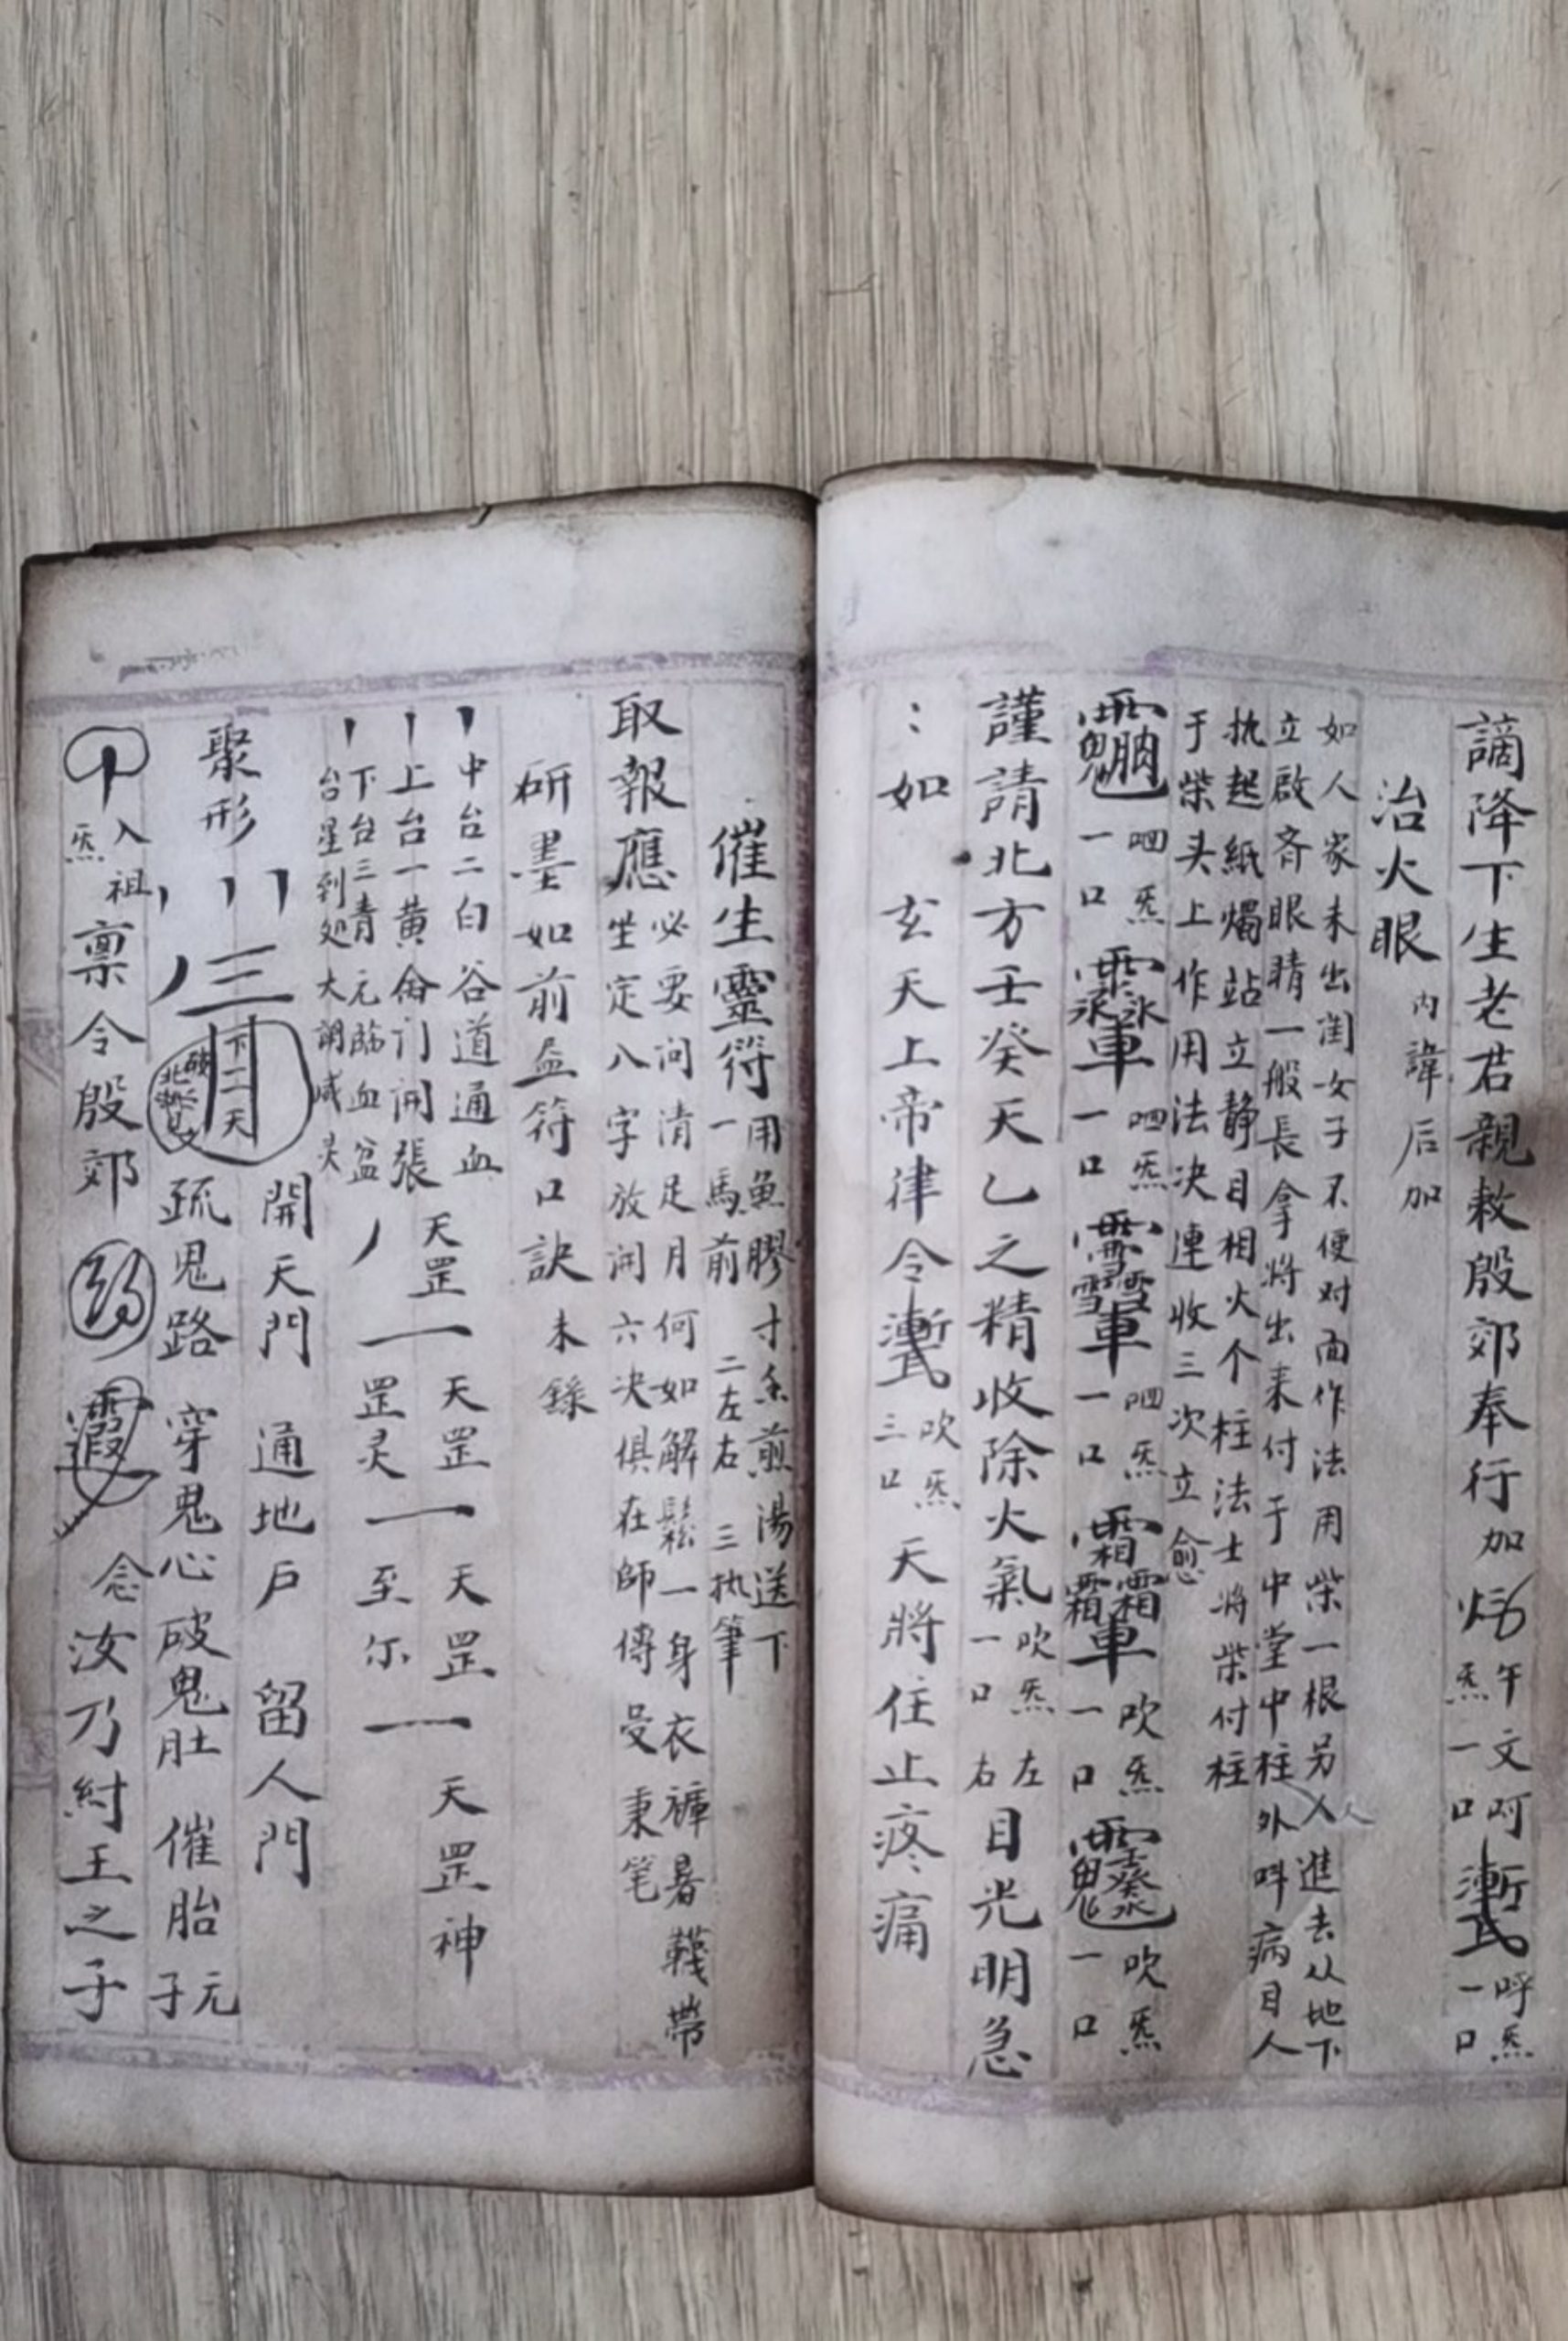 謫降下生老君親敕殷郊奉行加
午文呵炁一口
呼炁一口
治火眼
内諱后加
如人家未出闺女子不便对面作法用柴一根另人進去从地下
立啟齐眼睛一般長拿将出来付于中堂中柱外呌病目人
执起紙燭站立静目相火个柱法士将柴付柱
于柴头上作用法决連收三次立愈
呬炁一口
呬炁一口
呬炁一口
吹炁一口
吹炁一口
謹請北方壬癸天乙之精收除火氣
吹炁一口
左右
目光明急
：如玄天上帝律令
吹炁三口
天將住止疼痛
催生靈符
用魚膠寸金煎湯送下
一馬前 二左右 三执筆
取報應
必要问清足月何如解鬆一身衣褲暑韈帶
坐定八字放闲六决俱在師傳受秉笔
研墨如前盆符口訣
未錄
中台二白谷道通血
上台一黄俞门闲張
下台三青元臨血盆
台星到処大調咸灵
天罡 天罡 天罡 天罡神
罡灵至尔
聚形
三
下二天
開天門 通地户 留人門
疏鬼路 穿鬼心 破鬼肚 催胎
元子
入祖炁
禀令殷郊
念汝乃紂王之子